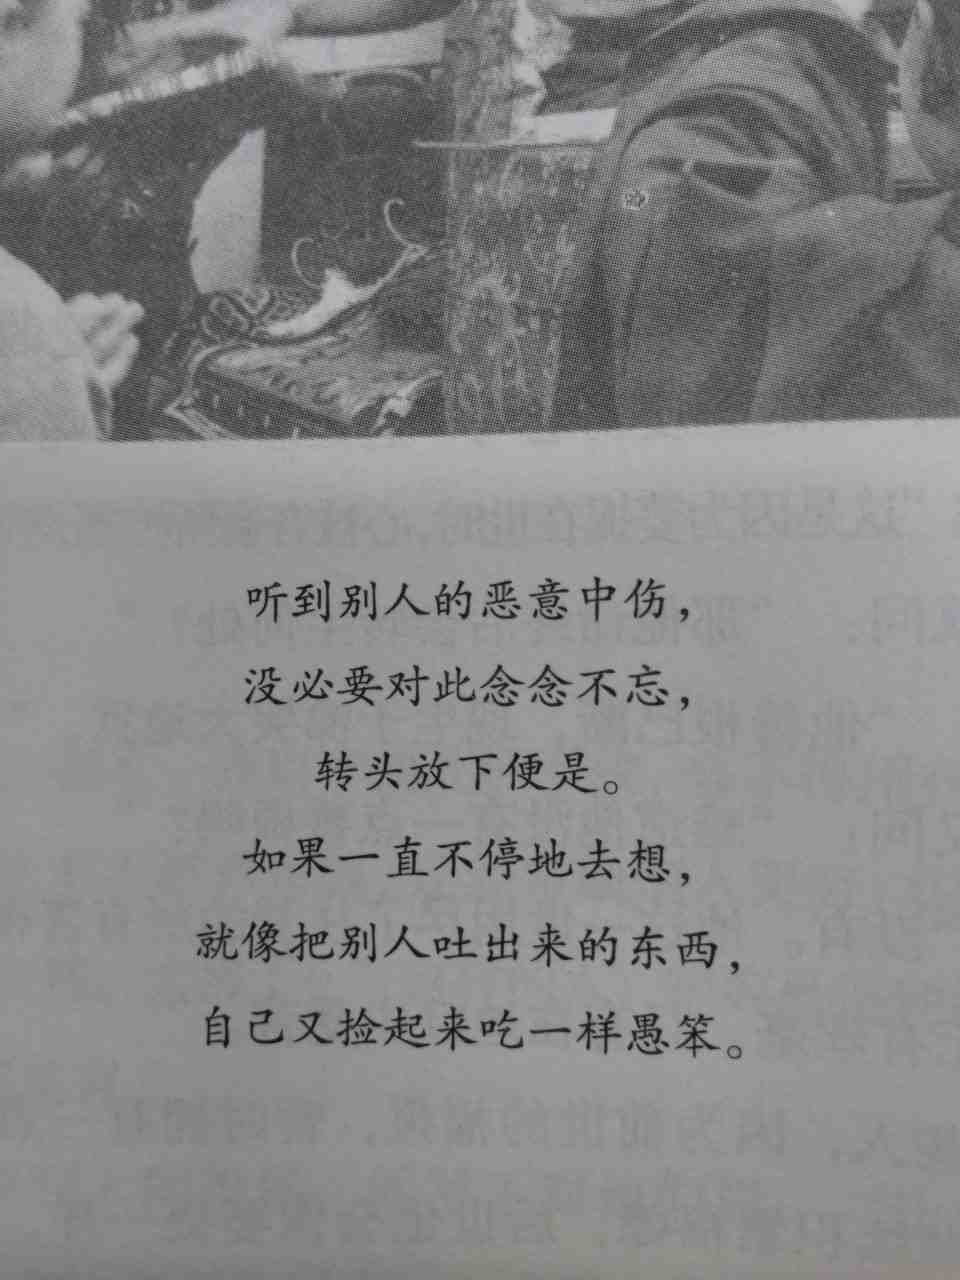 听到别人的恶意中伤，
没必要对此念念不忘，
转头放下便是。
如果一直不停地去想，
就像把别人吐出来的东西，
自己又捡起来吃一样愚笨。